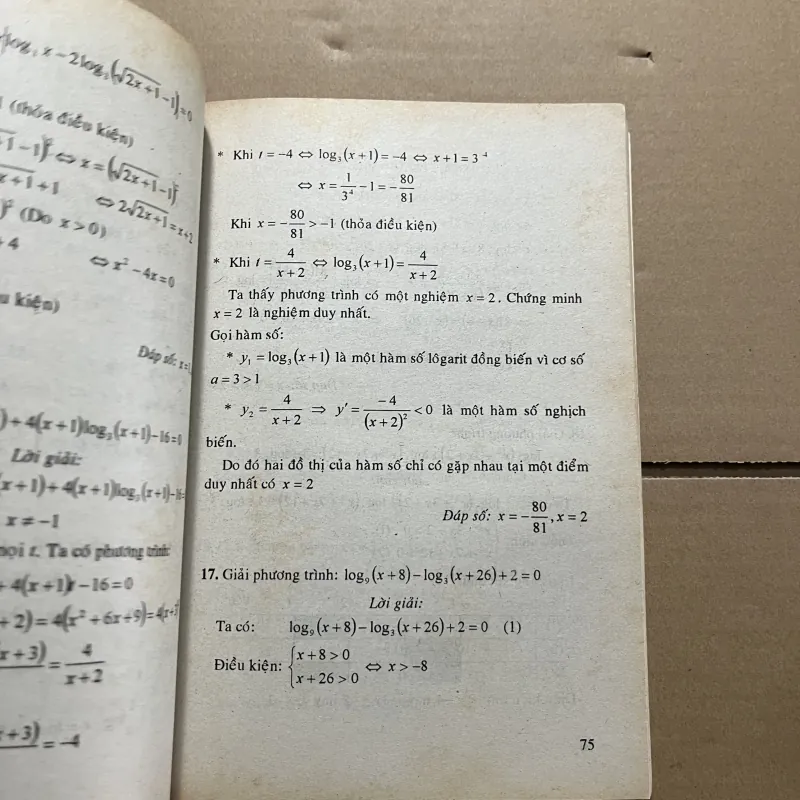 log₃ x − 2log₃(√2x+1 −1)=0
(thỏa điều kiện)
⇔ x = (√2x+1 −1)²
⇔ 2√2x+1 = x+2
(Do x > 0)
⇔ x² − 4x = 0
Đáp số: x=
+4(x+1)log₃(x+1)−16=0
Lời giải:
x+1)+4(x+1)log₃(x+1)−16=
x ≠ −1
t. Ta có phương trình:
4(x+1)t −16 = 0
+2) = 4(x²+6x+9) = 4(x+3)
x+3) / x+2 = 4 / x+2
+3) = −4
* Khi t = −4 ⇔ log₃(x+1) = −4 ⇔ x+1 = 3⁻⁴
⇔ x = 1/3⁴ − 1 = − 80/81
Khi x = − 80/81 > −1 (thỏa điều kiện)
* Khi t = 4/(x+2) ⇔ log₃(x+1) = 4/(x+2)
Ta thấy phương trình có một nghiệm x = 2. Chứng minh
x = 2 là nghiệm duy nhất.
Gọi hàm số:
* y₁ = log₃(x+1) là một hàm số lôgarit đồng biến vì cơ số
a = 3 > 1
* y₂ = 4/(x+2) ⇒ y′ = −4/(x+2)² < 0 là một hàm số nghịch
biến.
Do đó hai đồ thị của hàm số chỉ có gặp nhau tại một điểm
duy nhất có x = 2
Đáp số: x = − 80/81, x = 2
17. Giải phương trình: log₉(x+8) − log₃(x+26) + 2 = 0
Lời giải:
Ta có: log₉(x+8) − log₃(x+26) + 2 = 0 (1)
Điều kiện: { x+8 > 0
x+26 > 0 ⇔ x > −8
75